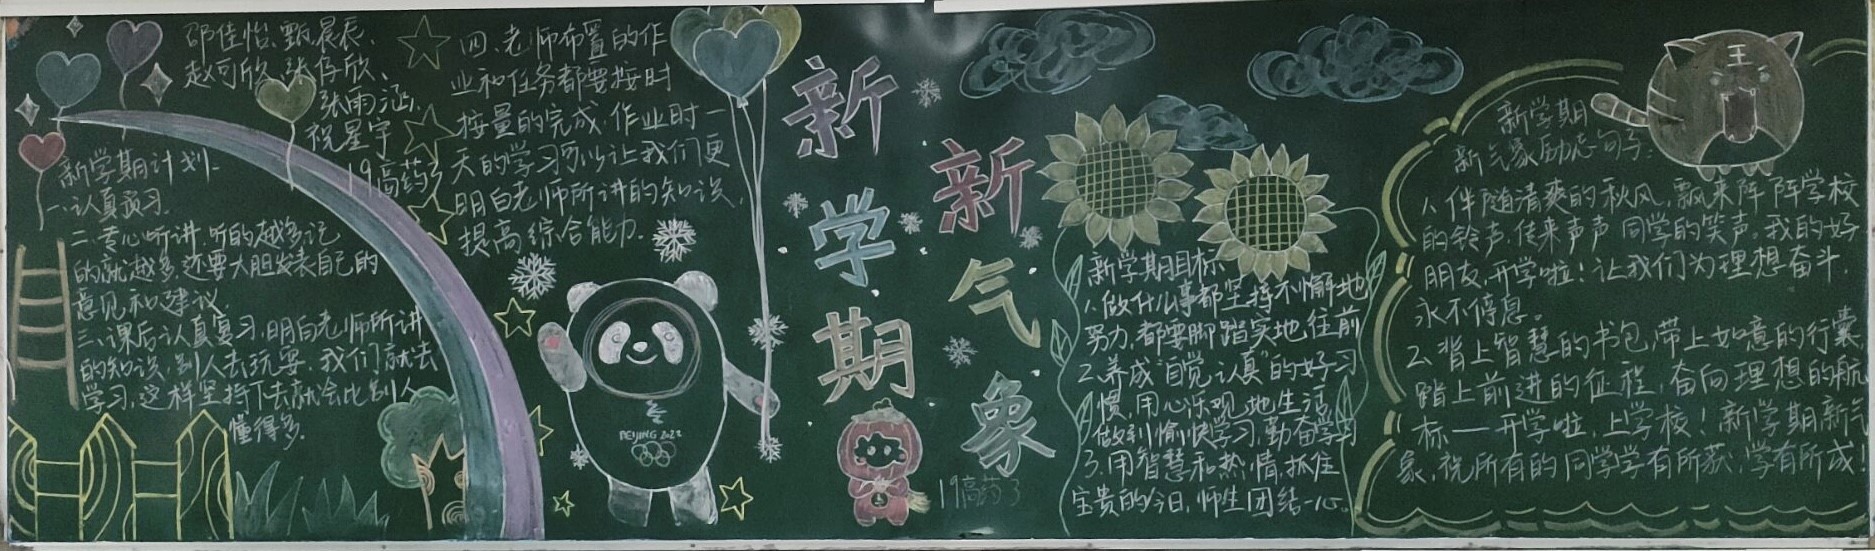 邵佳怡、甄晨辰、
赵可欣、张存欣、
张雨涵、
祝星宇
19高药3
新学期计划:
一、认真预习.
二、专心听讲,听的越多记
的就越多,还要大胆发表自己的
意见和建议.
三、课后认真复习,明白老师所讲
的知识,别人去玩耍,我们就去
学习,这样坚持下去就会比别人
懂得多.
四、老师布置的作
业和任务都要按时
按量的完成,作业时一
天的学习可以让我们更
明白老师所讲的知识,
提高综合能力.
BEIJING 2022
新学期
新气象
19高药3
新学期目标
1.做什么事都坚持不懈地
努力,都要脚踏实地,往前
2.养成“自觉认真”的好习
惯,用心乐观地生活
做到愉快学习,勤奋学习
3.用智慧和热情,抓住
宝贵的今日,师生团结一心。
新学期
新气象励志句子:
1.伴随清爽的秋风,飘来阵阵学校
的铃声,传来声声同学的笑声。我的好
朋友,开学啦!让我们为理想奋斗,
永不停息。
2.背上智慧的书包,带上如意的行囊,
踏上前进的征程,奋向理想的航
标——开学啦,上学校!新学期新气
象,祝所有的同学学有所获,学有所成!
王